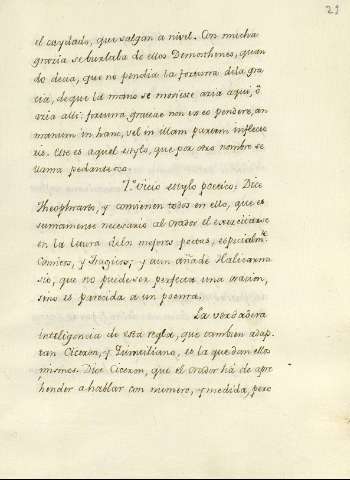 21
el cuydado, que salgan a nivel. Con mucha
gracia se burlaba de ellos Demosthenes, quan
do decia, que no pendia la fortuna dela gre
cia, de que la mano se moviese acia aqui, ò
acia alli: fortunas graeciae non ex eo pendere, an
manum in hanc, vel in illam partem inflecte
ris. Este es aquel estylo, que por otro nombre se
llama pedantesco.
7.º Vicio estylo poetico: Dice
Theophrasto, y convienen todos en ello, que es
sumamente necesario al orador el exercitarse
en la letura delos mejores poetas, especialm.te
Comicos, y Tragicos; y aun añade Halicarna
sio, que no puede ser perfecta una oracion,
sino es parecida a un poema.
La verdadera
inteligencia de esta regla, que tambien adop
tan Ciceron, y Quintiliano, es la que dan ellos
mismos. Dice Ciceron, que el orador há de apre
hender a hablar con numero, y medida, pero